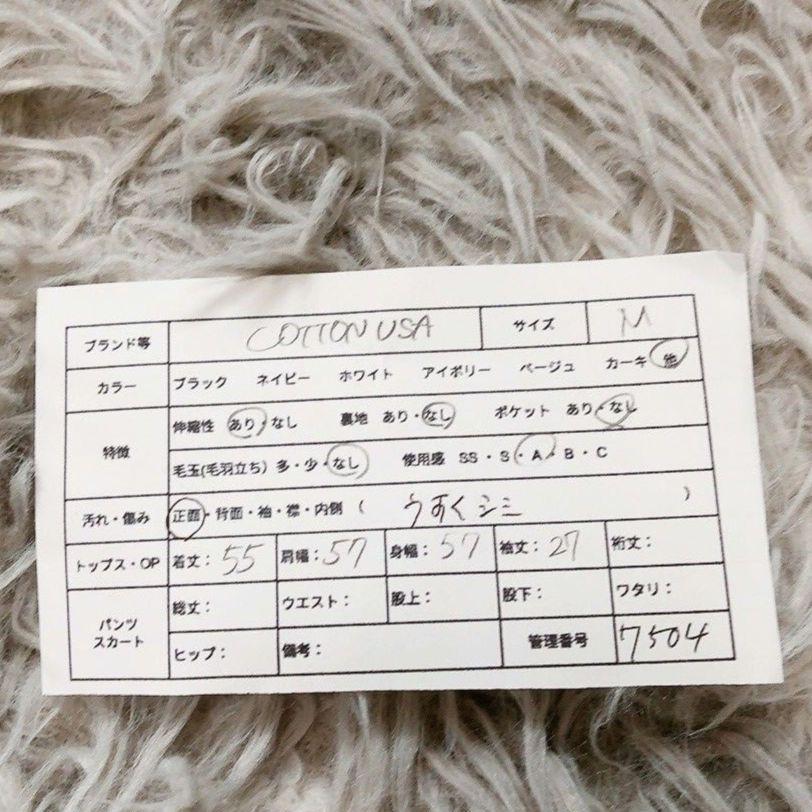 ブランド等 COTTON USA サイズ M
カラー ブラック ネイビー ホワイト アイボリー ベージュ カーキ 他
特徴 伸縮性 あり・なし 裏地 あり・なし ポケット あり・なし
毛玉(毛羽立ち) 多・少・なし 使用感 SS・S・A・B・C
汚れ・傷み 正面・背面・袖・襟・内側 ( うすくシミ )
トップス・OP 着丈：55 肩幅：57 身幅：57 袖丈：27 裄丈：
パンツ スカート 総丈： ウエスト： 股上： 股下： ワタリ：
ヒップ： 備考： 管理番号 7504